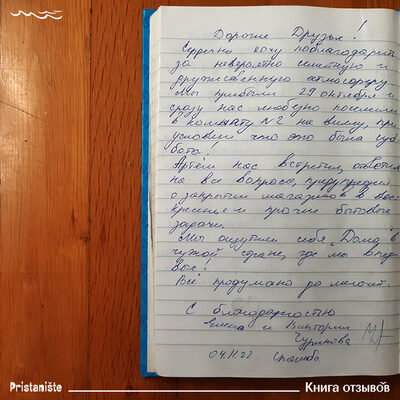 Дорогие Друзья!
Сердечно хочу поблагодарить
за невероятно уютную и
дружественную атмосферу.
Мы прибыли 29 октября и
сразу нас любезно поселили
в комнату №2 на виллу, при
условии что это была суб-
бота!
Артём нас встретил, ответил
на все вопросы, предупредил
о закрытии магазинов в вос-
кресенье и прочие бытовые
задачи.
Мы ощутили себя "Дома" в
чужой стране, где мы впер-
вые.
Всё продумано до мелочей.
С благодарностью
и Виктория
04.11.22 Спасибо
Pristanište
Книга отзывов